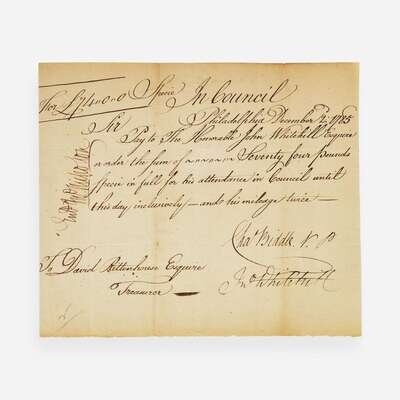 For £74-0-0 Specie In Council
Philadelphia December 1785
Sir
Pay to The Honorable John Whitehill Esquire
order the sum of Seventy four pounds
specie in full for his attendance in Council until
this day inclusively — and his mileage twice —
Cha.s Biddle V. P
To David Rittenhouse Esquire
Treasurer
Jn.o Whitehill